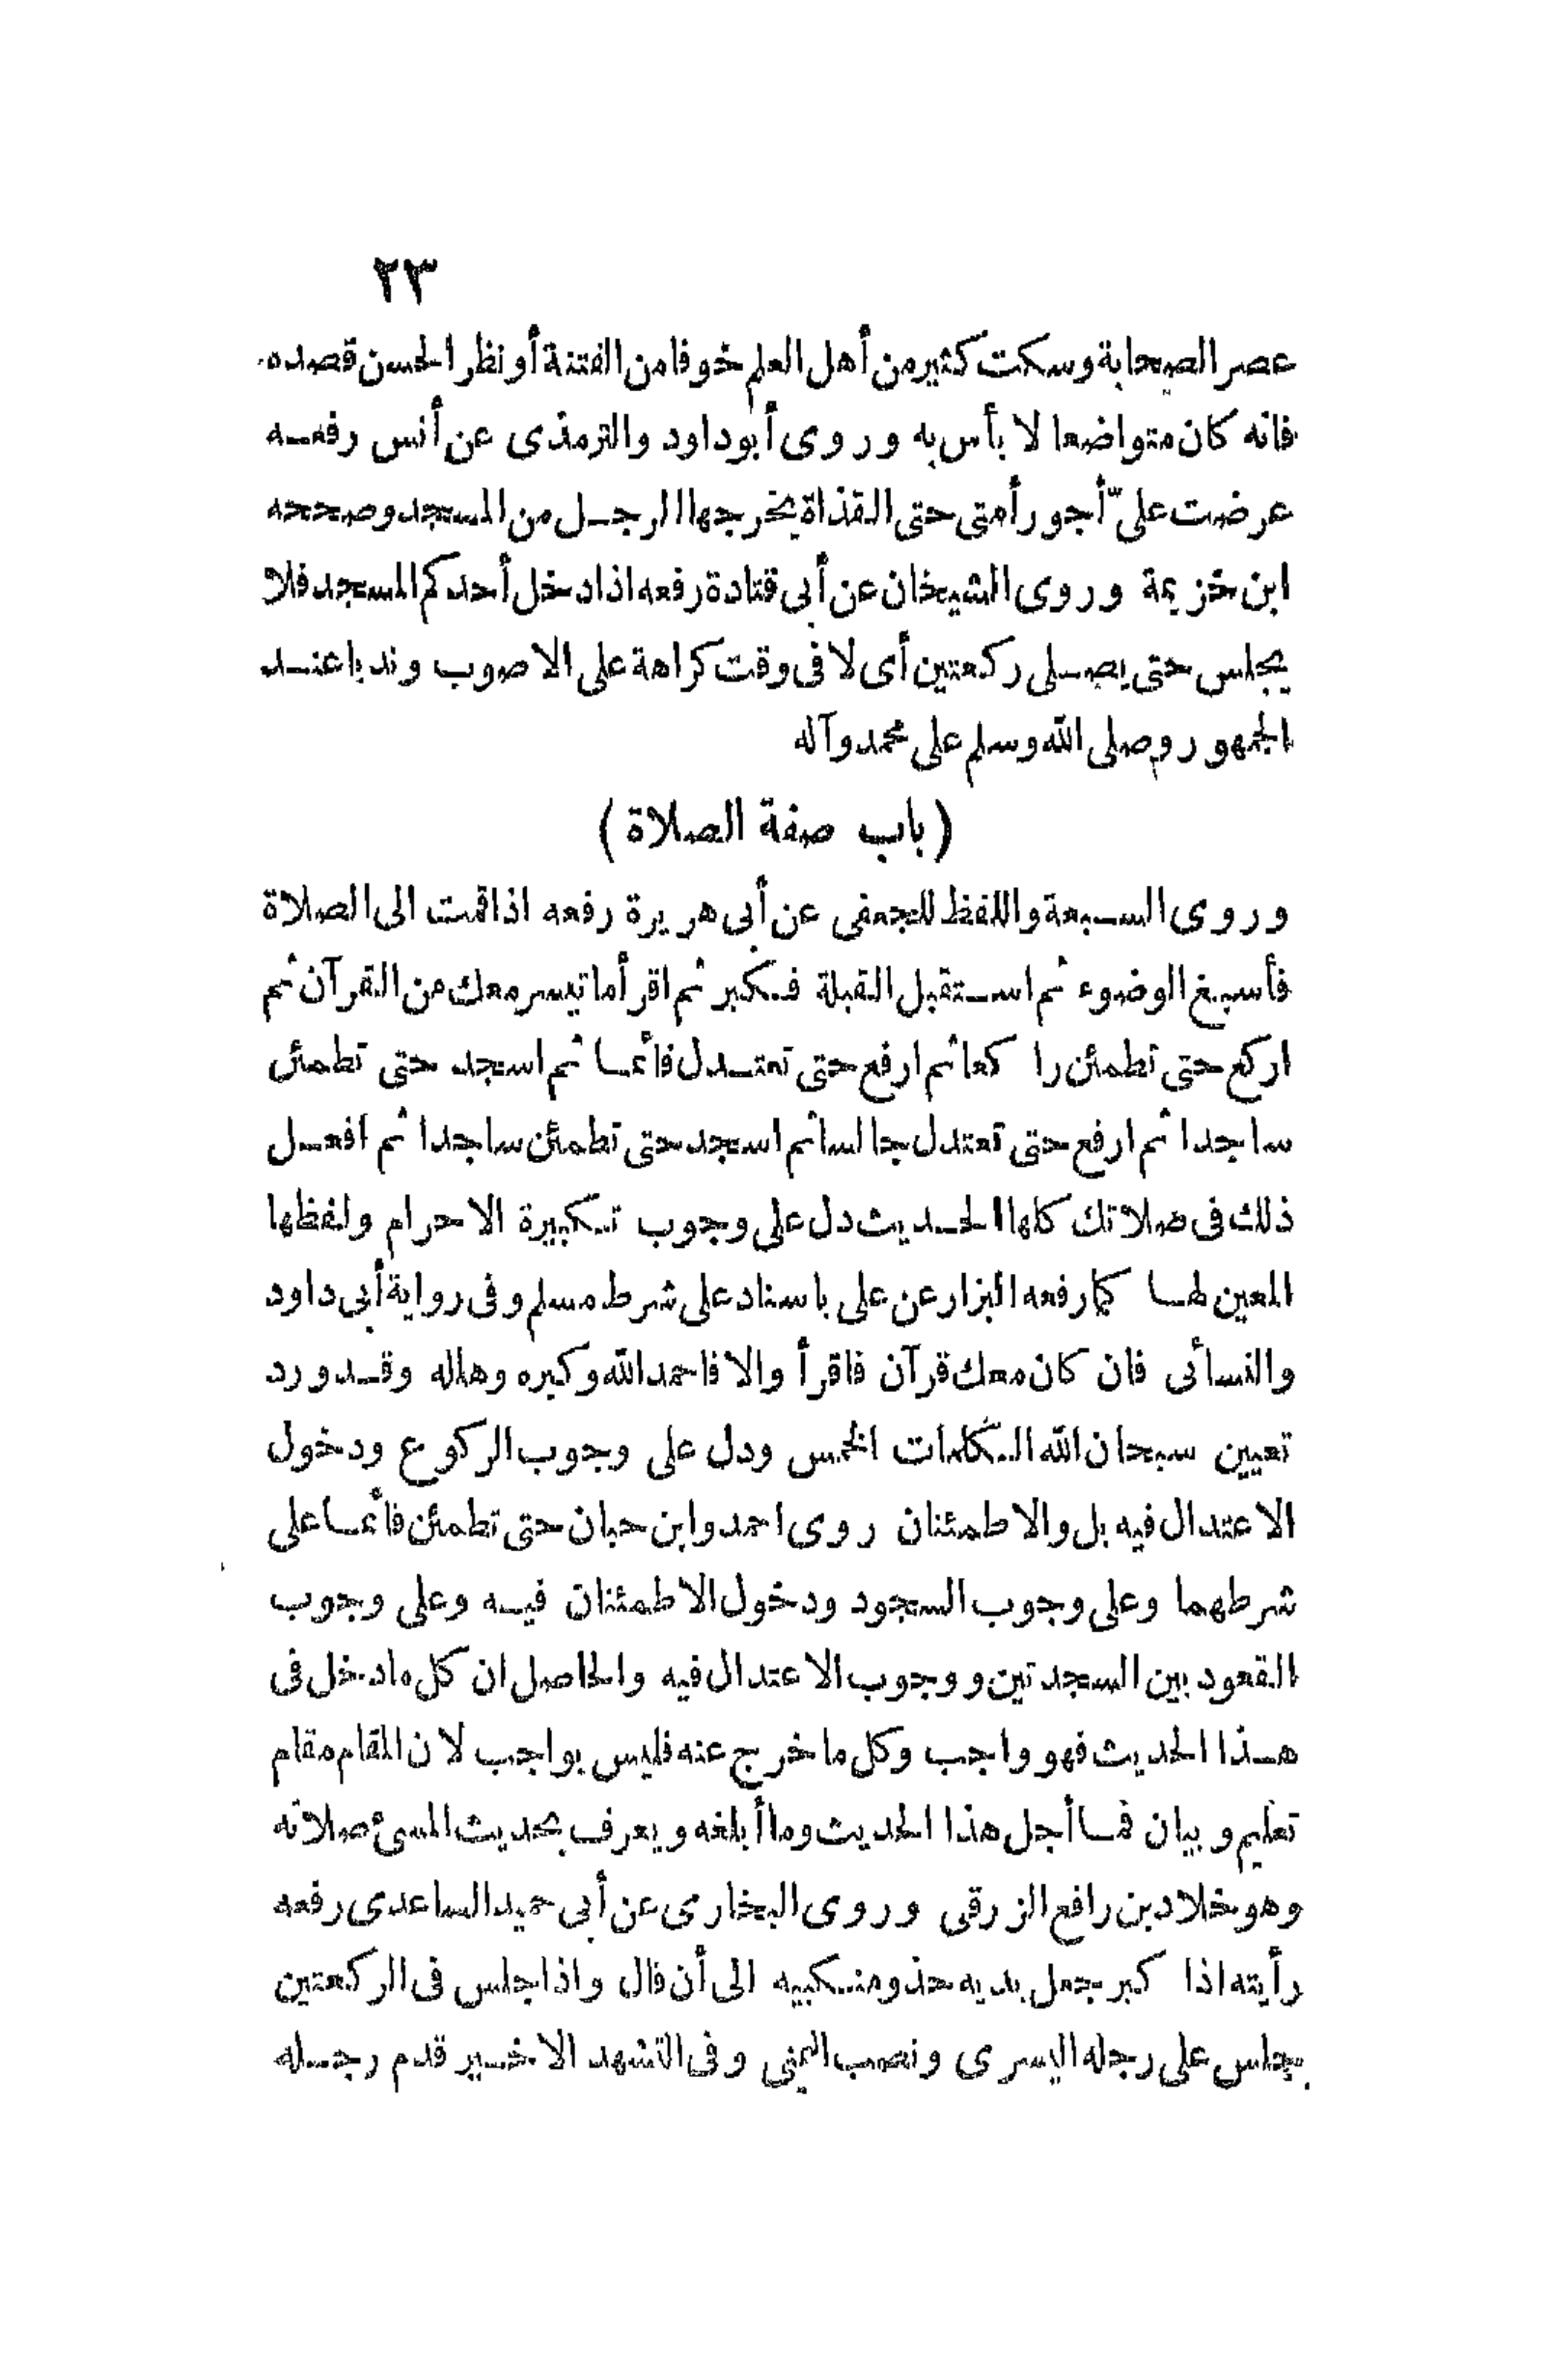 ٢٣
عصر الصحابة وسكت كثير من أهل العلم خوفا من الفتنة أو نظرا لحسن قصده
فانه كان متواضعا لا بأس به وروى أبو داود والترمذى عن أنس رفعه
عرضت علىّ أجور أمتى حتى القذاة يخرجها الرجل من المسجد وصححه
ابن خزيمة وروى الشيخان عن أبى قتادة رفعه اذا دخل أحدكم المسجد فلا
يجلس حتى يصلى ركعتين أى لا فى وقت كراهة على الاصوب وندبا عند
الجمهور وصلى الله وسلم على محمد وآله
(باب صفة الصلاة)
وروى السبعة واللفظ للجعفى عن أبى هريرة رفعه اذا قمت الى الصلاة
فأسبغ الوضوء ثم استقبل القبلة فكبر ثم اقرأ ما تيسر معك من القرآن ثم
اركع حتى تطمئن راكعا ثم ارفع حتى تعتدل قائما ثم اسجد حتى تطمئن
ساجدا ثم ارفع حتى تعتدل جالسا ثم اسجد حتى تطمئن ساجدا ثم افعل
ذلك فى صلاتك كلها الحديث دل على وجوب تكبيرة الاحرام ولفظها
المعين لها كما رفعه البزار عن على باسناد على شرط مسلم وفى رواية أبى داود
والنسائى فان كان معك قرآن فاقرأ والا فاحمد الله وكبره وهلله وقد ورد
تعيين سبحان الله الكلمات الخمس ودل على وجوب الركوع ودخول
الاعتدال فيه بل والاطمئنان روى احمد وابن حبان حتى تطمئن قائما على
شرطهما وعلى وجوب السجود ودخول الاطمئنان فيه وعلى وجوب
القعود بين السجدتين ووجوب الاعتدال فيه والحاصل ان كل ما دخل فى
هذا الحديث فهو واجب وكل ما خرج عنه فليس بواجب لان المقام مقام
تعليم وبيان فما أجل هذا الحديث وما أبلغه ويعرف بحديث المسئ صلاته
وهو خلاد بن رافع الزرقى وروى البخارى عن أبى حميد الساعدى رفعه
رأيته اذا كبر جعل يديه حذو منكبيه الى أن قال واذا جلس فى الركعتين
جلس على رجله اليسرى ونصب اليمنى وفى التشهد الاخير قدم رجله